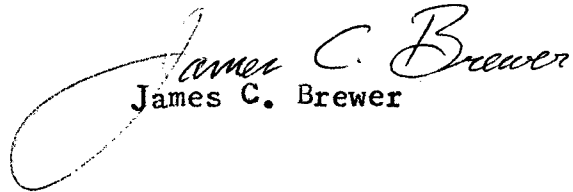 James C. Brewer
James C. Brewer